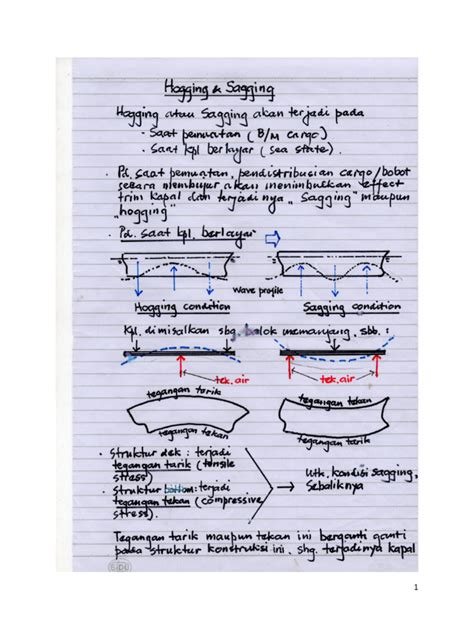 Hogging & Sagging
Hogging atau Sagging akan terjadi pada
- Saat pemuatan ( B/M cargo )
- Saat kpl berlayar ( sea state ).
• Pd. saat pemuatan, pendistribusian cargo/bobot
secara membujur akan menimbulkan effect
trim kapal dan terjadinya „ Sagging" maupun
„hogging"
• Pd. saat kpl. berlayar
wave profile
Hogging condition
Sagging condition
Kpl. dimisalkan sbg. balok memanjang, sbb. :
tek. air
tek. air
tegangan tarik
tegangan tekan
tegangan tekan
tegangan tarik
• Struktur dek : terjadi
tegangan tarik (tensile
stress)
• Struktur bottom: terjadi
tegangan tekan (compressive
stress).
Utk. kondisi sagging,
Sebaliknya
Tegangan tarik maupun tekan ini berganti ganti
pada struktur konstruksi ini, shg. terjadinya kapal
1